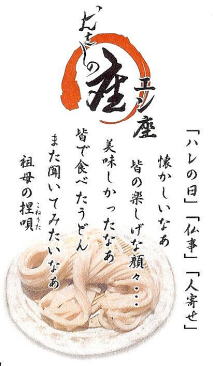 むさしの
エン座
座
「ハレの日」「仏事」「人寄せ」
懐かしいなあ
皆の楽しげな顔々・・・
美味しかったなあ
皆で食べたうどん
また聞いてみたいなぁ
祖母の捏唄
こねうた